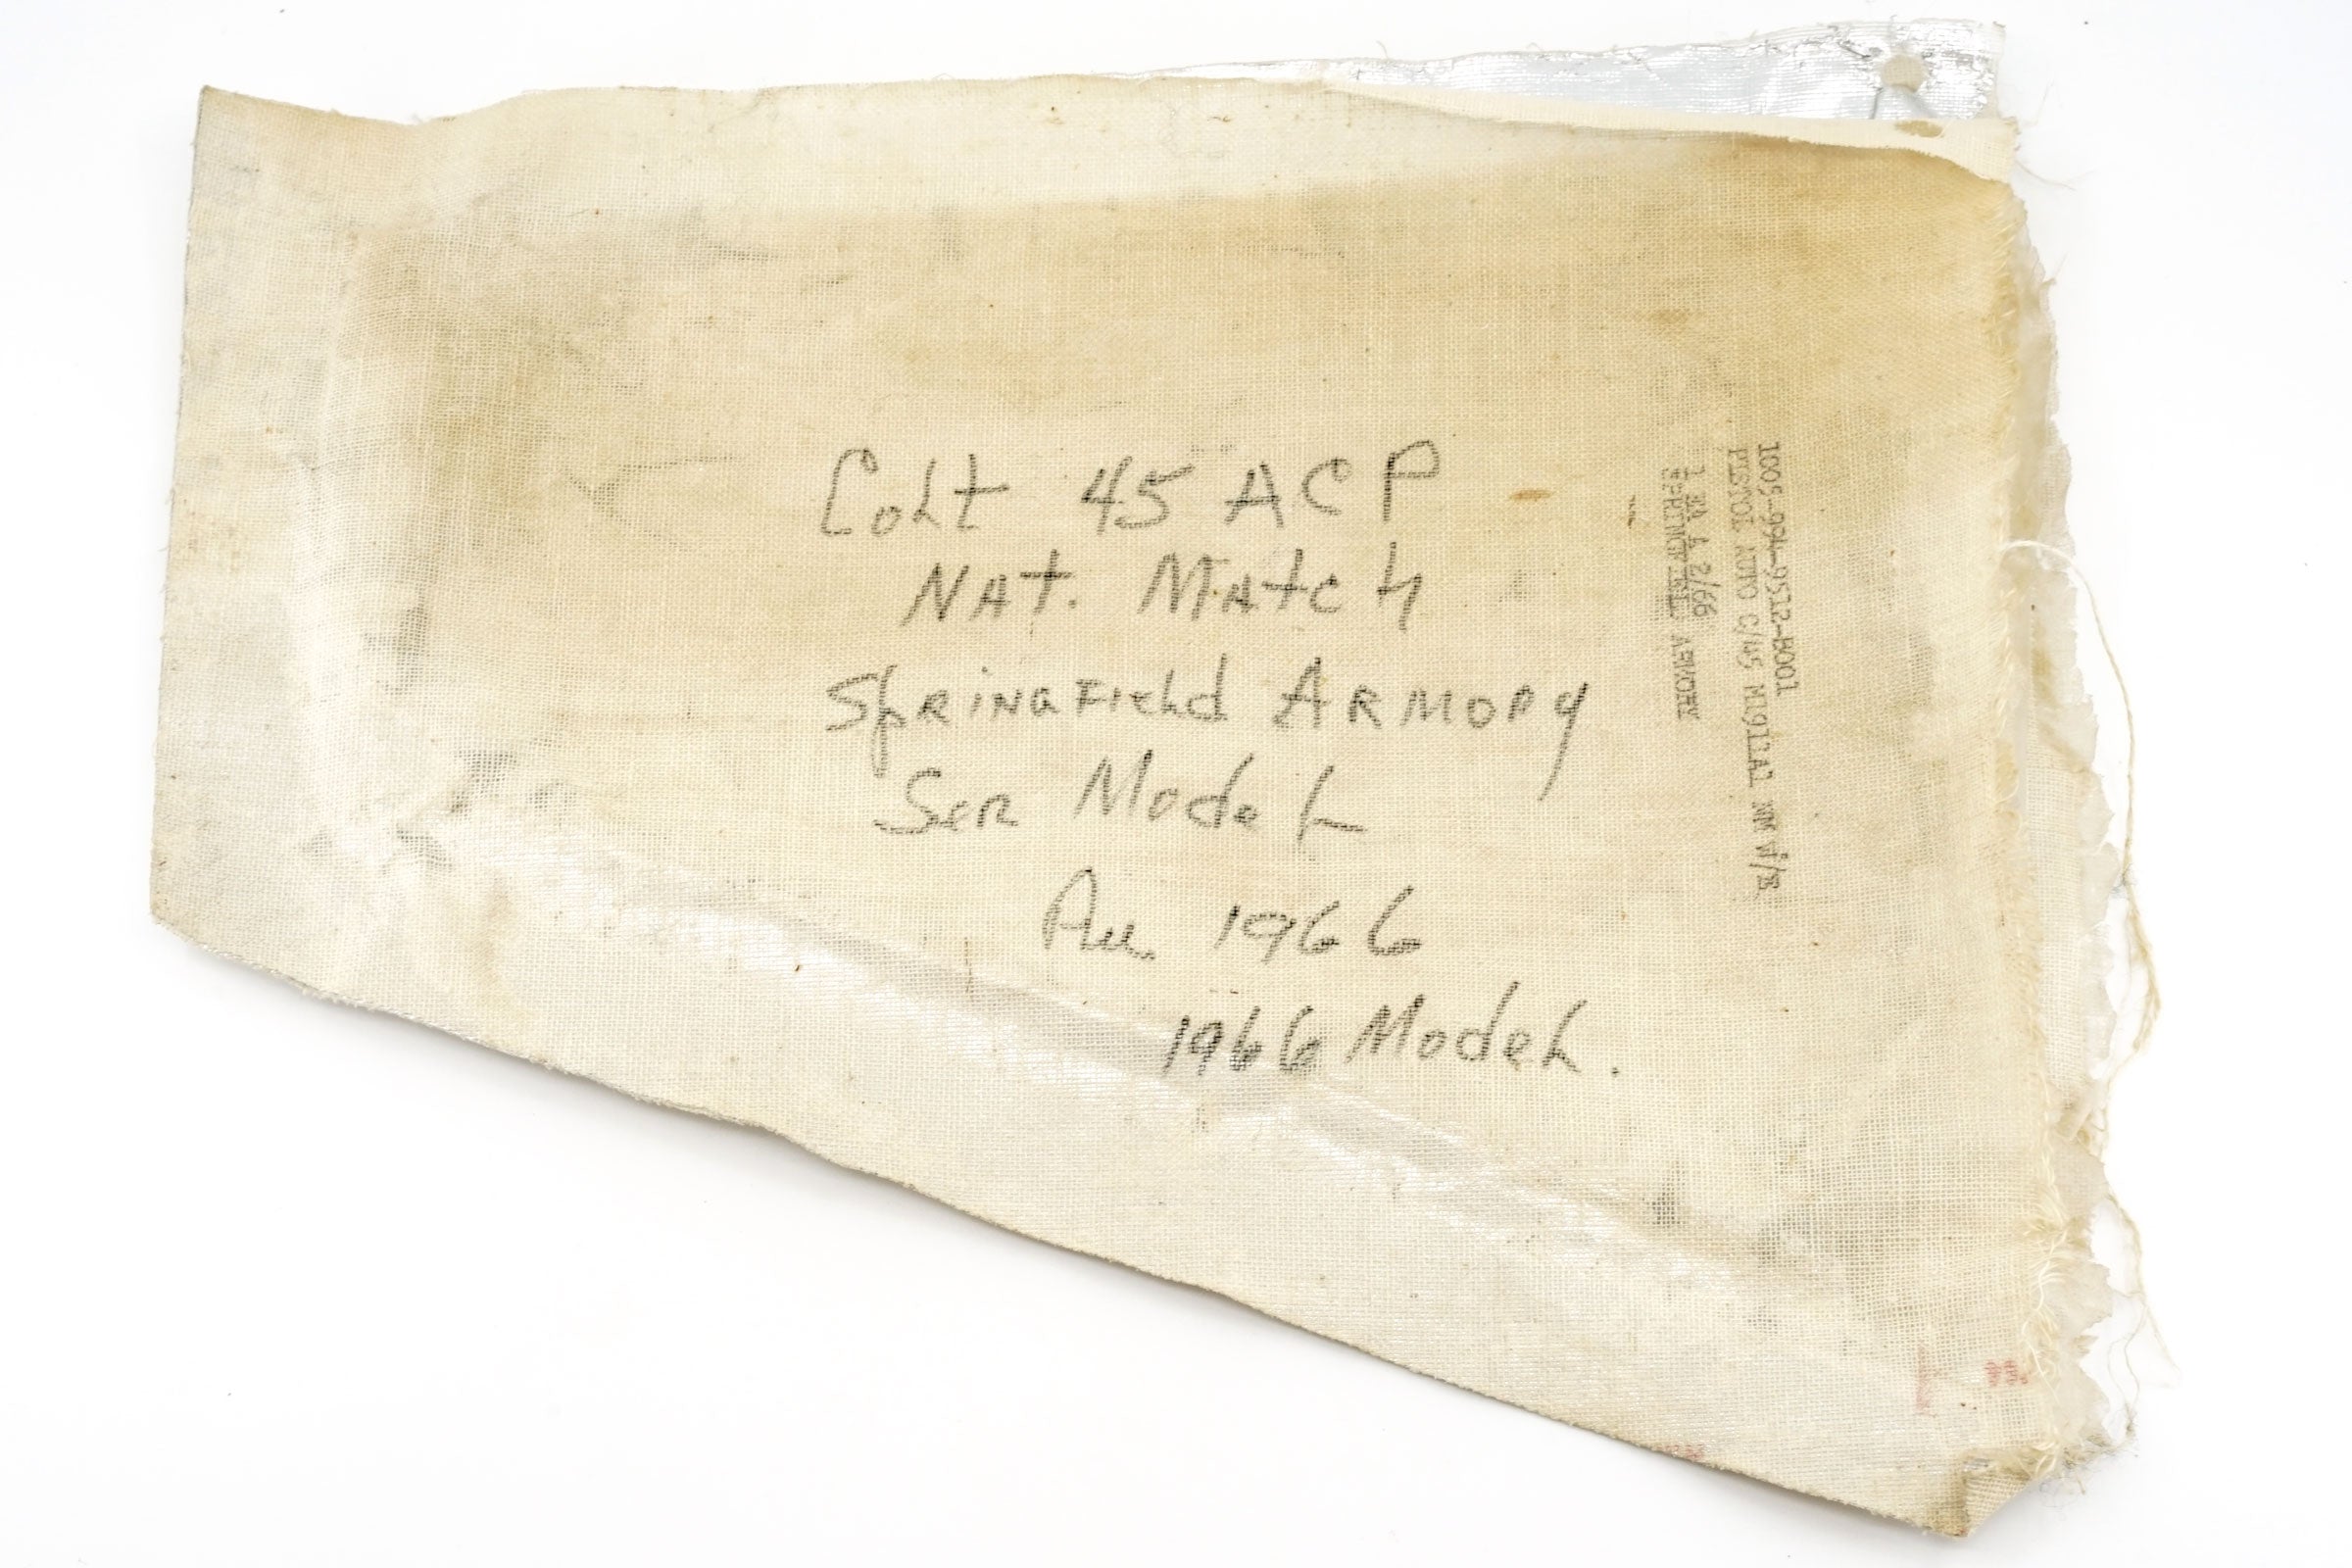 Colt 45 ACP
Nat. Match
Springfield Armory
Ser Model
1966
1966 Model.
1005-994-9512-B001
PISTOL AUTO C/45 M1911A1 NM W/E
1 EA A 2/66
SPRINGFIELD ARMORY